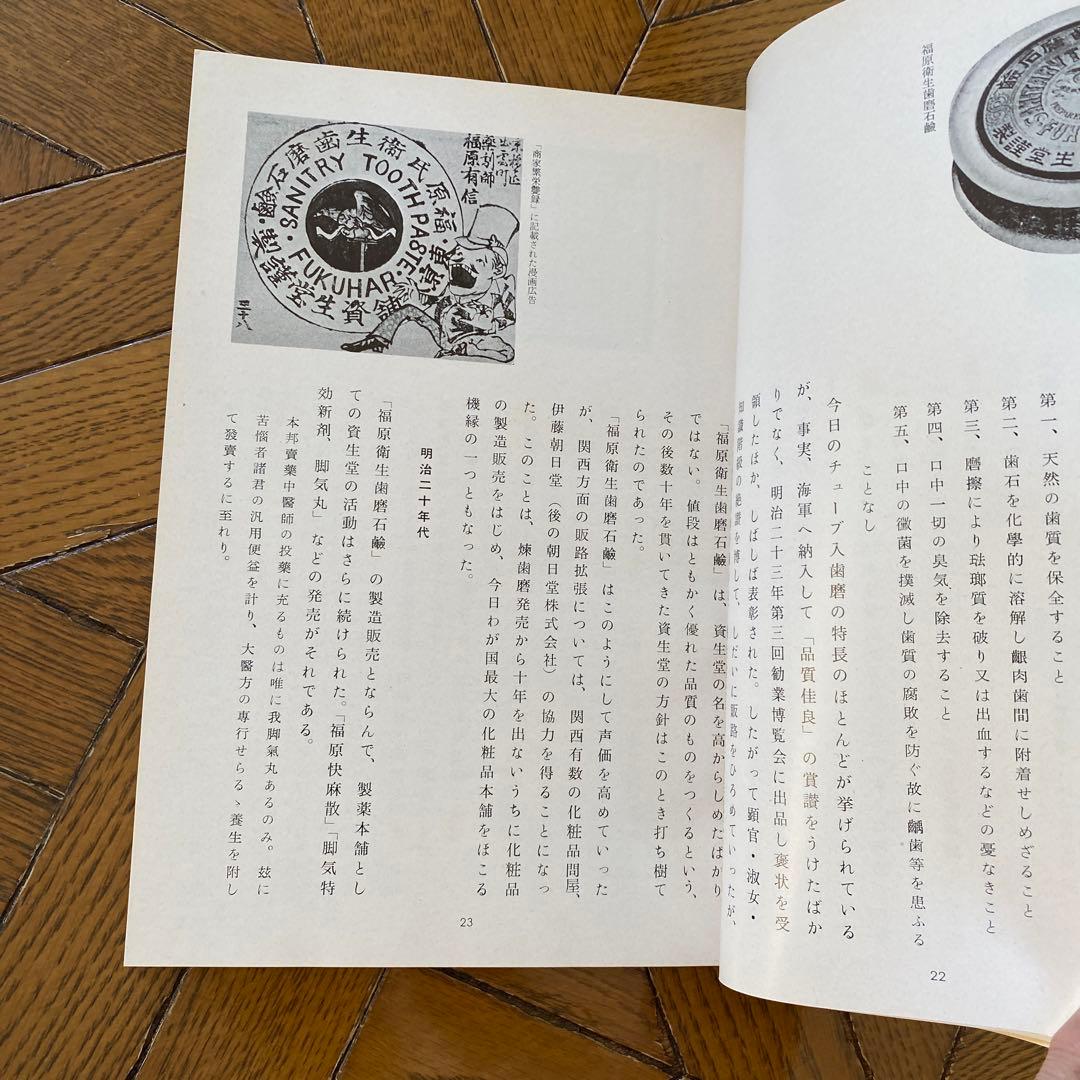 福原衛生歯磨石鹼
第一、天然の歯質を保全すること
第二、歯石を化學的に溶解し齦肉歯間に附着せしめざること
第三、磨擦により琺瑯質を破り又は出血するなどの憂なきこと
第四、口中一切の臭気を除去すること
第五、口中の黴菌を撲滅し歯質の腐敗を防ぐ故に齲歯等を患ふる
ことなし
今日のチューブ入歯磨の特長のほとんどが挙げられている
が、事実、海軍へ納入して「品質佳良」の賞讃をうけたばか
りでなく、明治二十三年第三回勧業博覧会に出品し褒状を受
領したほか、しばしば表彰された。したがって顕官・淑女・
知識階級の絶讃を博して、しだいに販路をひろめていったが、
22
「商家繁栄嚢録」に記載された漫画広告
出雲町
薬剤師
福原有信
福原氏衞生歯磨石鹼
SANITRY TOOTH PASTE
FUKUHAR
東京
資生堂謹製
「福原衛生歯磨石鹼」は、資生堂の名を高からしめたばかり
ではない。値段はともかく優れた品質のものをつくるという、
その後数十年を貫いてきた資生堂の方針はこのとき打ち樹て
られたのであった。
「福原衛生歯磨石鹼」はこのようにして声価を高めていった
が、関西方面の販路拡張については、関西有数の化粧品問屋、
伊藤朝日堂(後の朝日堂株式会社)の協力を得ることになっ
た。このことは、煉歯磨発売から十年を出ないうちに化粧品
の製造販売をはじめ、今日わが国最大の化粧品本舗をほこる
機縁の一つともなった。
明治二十年代
「福原衛生歯磨石鹼」の製造販売とならんで、製薬本舗とし
ての資生堂の活動はさらに続けられた。「福原快麻散」「脚気特
効新剤、脚気丸」などの発売がそれである。
本邦賣薬中醫師の投薬に充るものは唯に我脚氣丸あるのみ。玆に
苦悩者諸君の汎用便益を計り、大醫方の専行せらるゝ養生を附し
て發賣するに至れり。
23